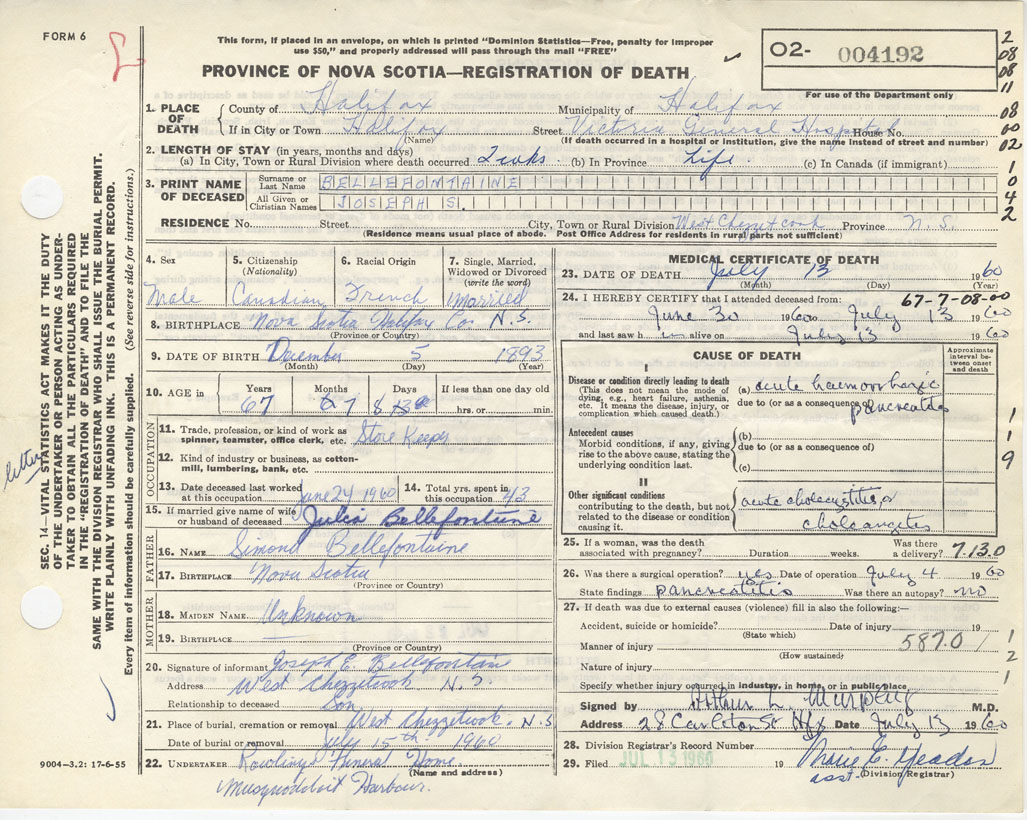 FORM 6
This form, if placed in an envelope, on which is printed "Dominion Statistics—Free, penalty for improper
use $50," and properly addressed will pass through the mail "FREE"
PROVINCE OF NOVA SCOTIA—REGISTRATION OF DEATH
O2- 004192
For use of the Department only
2
08
08
11
08
00
02
1
0
4
2
1. PLACE OF DEATH
County of Halifax Municipality of Halifax
If in City or Town Halifax Street Victoria General Hospital House No.
(Name) (If death occurred in a hospital or institution, give the name instead of street and number)
2. LENGTH OF STAY (in years, months and days)
(a) In City, Town or Rural Division where death occurred 2 wks. (b) In Province Life. (c) In Canada (if immigrant)
3. PRINT NAME OF DECEASED
Surname or Last Name BELLEFONTAINE
All Given or Christian Names JOSEPH S.
RESIDENCE No. Street City, Town or Rural Division West Chezzetcook Province N.S.
(Residence means usual place of abode. Post Office Address for residents in rural parts not sufficient)
4. Sex
Male
5. Citizenship
(Nationality)
Canadian
6. Racial Origin
French
7. Single, Married, Widowed or Divorced
(write the word)
married
8. BIRTHPLACE Nova Scotia Halifax Co. N.S.
(Province or Country)
9. DATE OF BIRTH December 5 1893
(Month) (Day) (Year)
10. AGE in Years Months Days If less than one day old
67 7 8 hrs. or min.
OCCUPATION
11. Trade, profession, or kind of work as
spinner, teamster, office clerk, etc. Store Keeper
12. Kind of industry or business, as cotton-
mill, lumbering, bank, etc.
13. Date deceased last worked
at this occupation June 24 1960
14. Total yrs. spent in
this occupation 43
15. If married give name of wife
or husband of deceased Julia Bellefontaine
FATHER
16. NAME Simond Bellefontaine
17. BIRTHPLACE Nova Scotia
(Province or Country)
MOTHER
18. MAIDEN NAME Unknown
19. BIRTHPLACE
(Province or Country)
20. Signature of informant Joseph E. Bellefontain
Address West Chezzetcook N.S.
Relationship to deceased Son
21. Place of burial, cremation or removal West Chezzetcook. N.S
Date of burial or removal July 15th 1960
22. UNDERTAKER Rowlings Funeral Home.
(Name and address)
Musquodoboit Harbour.
MEDICAL CERTIFICATE OF DEATH
23. DATE OF DEATH July 13 1960
(Month) (Day) (Year)
24. I HEREBY CERTIFY that I attended deceased from: 67-7-08-00
June 30 1960 to July 13 1960
and last saw him alive on July 13 1960
CAUSE OF DEATH
Approximate interval between onset and death
I
Disease or condition directly leading to death
(This does not mean the mode of
dying, e.g., heart failure, asthenia,
etc. It means the disease, injury, or
complication which caused death.)
(a) acute haemorrhagic
due to (or as a consequence of)
pancreatitis
Antecedent causes
Morbid conditions, if any, giving
rise to the above cause, stating the
underlying condition last.
(b)
due to (or as a consequence of)
(c)
II
Other significant conditions
contributing to the death, but not
related to the disease or condition
causing it.
acute cholecystitis, or
cholangitis
1
1
9
25. If a woman, was the death Was there
associated with pregnancy? Duration weeks. a delivery? 7.13.0
26. Was there a surgical operation? yes Date of operation July 4 1960
State findings pancreatitis Was there an autopsy? no
27. If death was due to external causes (violence) fill in also the following:—
Accident, suicide or homicide? Date of injury 19
(State which)
Manner of injury 587.0
(How sustained)
Nature of injury
Specify whether injury occurred in industry, in home, or in public place
1
2
1
Signed by Arthur L. Murphy M.D.
Address 28 Carleton St Hfx Date July 13 1960
28. Division Registrar's Record Number
29. Filed JUL 13 1960 19
asst. (Division Registrar)
SEC. 14—VITAL STATISTICS ACT MAKES IT THE DUTY
OF THE UNDERTAKER OR PERSON ACTING AS UNDER-
TAKER TO OBTAIN ALL THE PARTICULARS REQUIRED
IN THE "REGISTRATION OF DEATH" AND TO FILE THE
SAME WITH THE DIVISION REGISTRAR WHO SHALL ISSUE THE BURIAL PERMIT.
WRITE PLAINLY WITH UNFADING INK. THIS IS A PERMANENT RECORD.
Every item of information should be carefully supplied. (See reverse side for instructions.)
letter
9004-3,2: 17-6-55